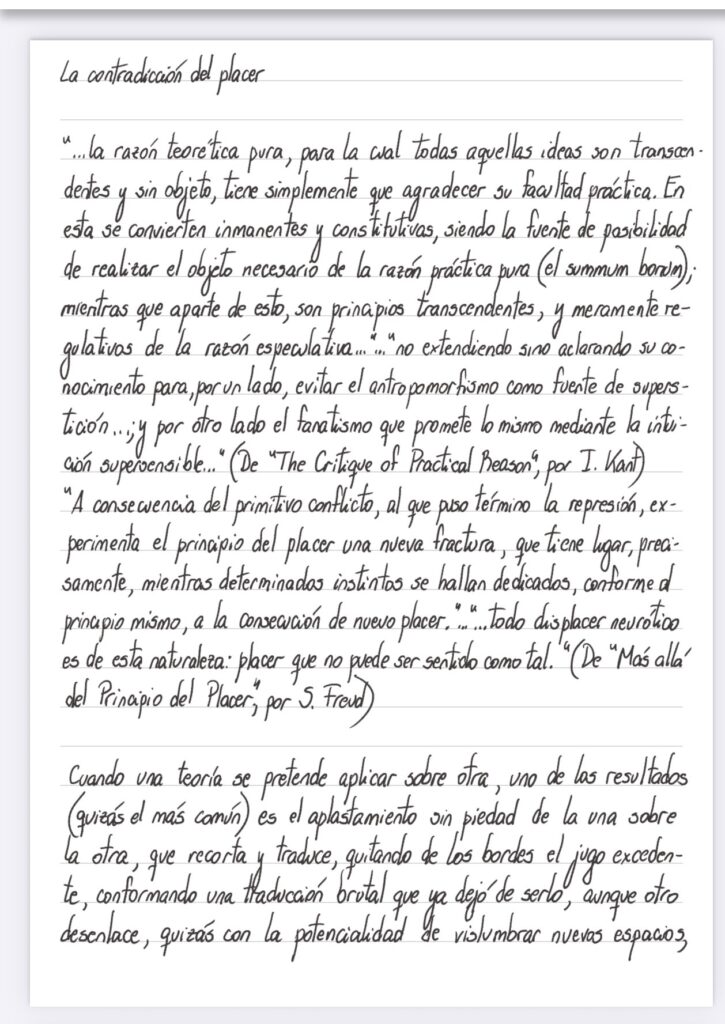 La contradicción del placer
"...la razón teorética pura, para la cual todas aquellas ideas son transcen-
dentes y sin objeto, tiene simplemente que agradecer su facultad práctica. En
esta se convierten inmanentes y constitutivas, siendo la fuente de posibilidad
de realizar el objeto necesario de la razón práctica pura (el summum bonum);
mientras que aparte de esto, son principios transcendentes, y meramente re-
gulativos de la razón especulativa..."..."no extendiendo sino aclarando su co-
nocimiento para, por un lado, evitar el antropomorfismo como fuente de supers-
tición...; y por otro lado el fanatismo que promete lo mismo mediante la intui-
ción supersensible..." (De "The Critique of Practical Reason", por I. Kant)
"A consecuencia del primitivo conflicto, al que puso término la represión, ex-
perimenta el principio del placer una nueva fractura, que tiene lugar, preci-
samente, mientras determinados instintos se hallan dedicados, conforme al
principio mismo, a la consecución de nuevo placer."..."...todo displacer neurótico
es de esta naturaleza: placer que no puede ser sentido como tal." (De "Más allá
del Principio del Placer", por S. Freud)
Cuando una teoría se pretende aplicar sobre otra, uno de los resultados
(quizás el más común) es el aplastamiento sin piedad de la una sobre
la otra, que recorta y traduce, quitando de los bordes el jugo exceden-
te, conformando una traducción brutal que ya dejó de serlo, aunque otro
desenlace, quizás con la potencialidad de vislumbrar nuevos espacios,